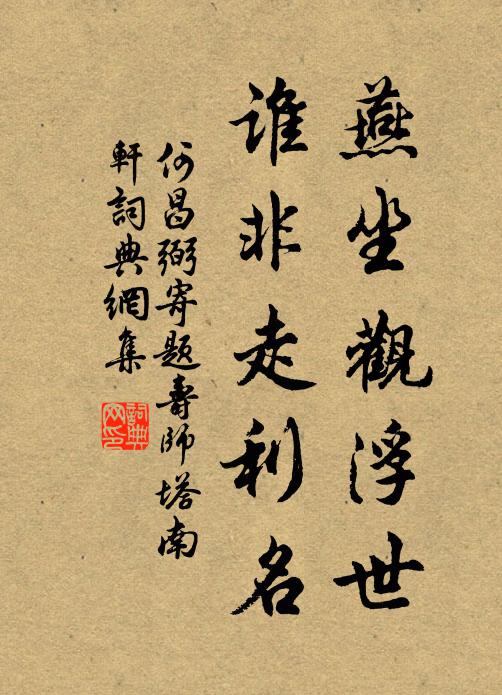 燕坐觀浮世
誰非走利名
何昌弼寄題壽師塔南
軒詞典網集
詞典
网印